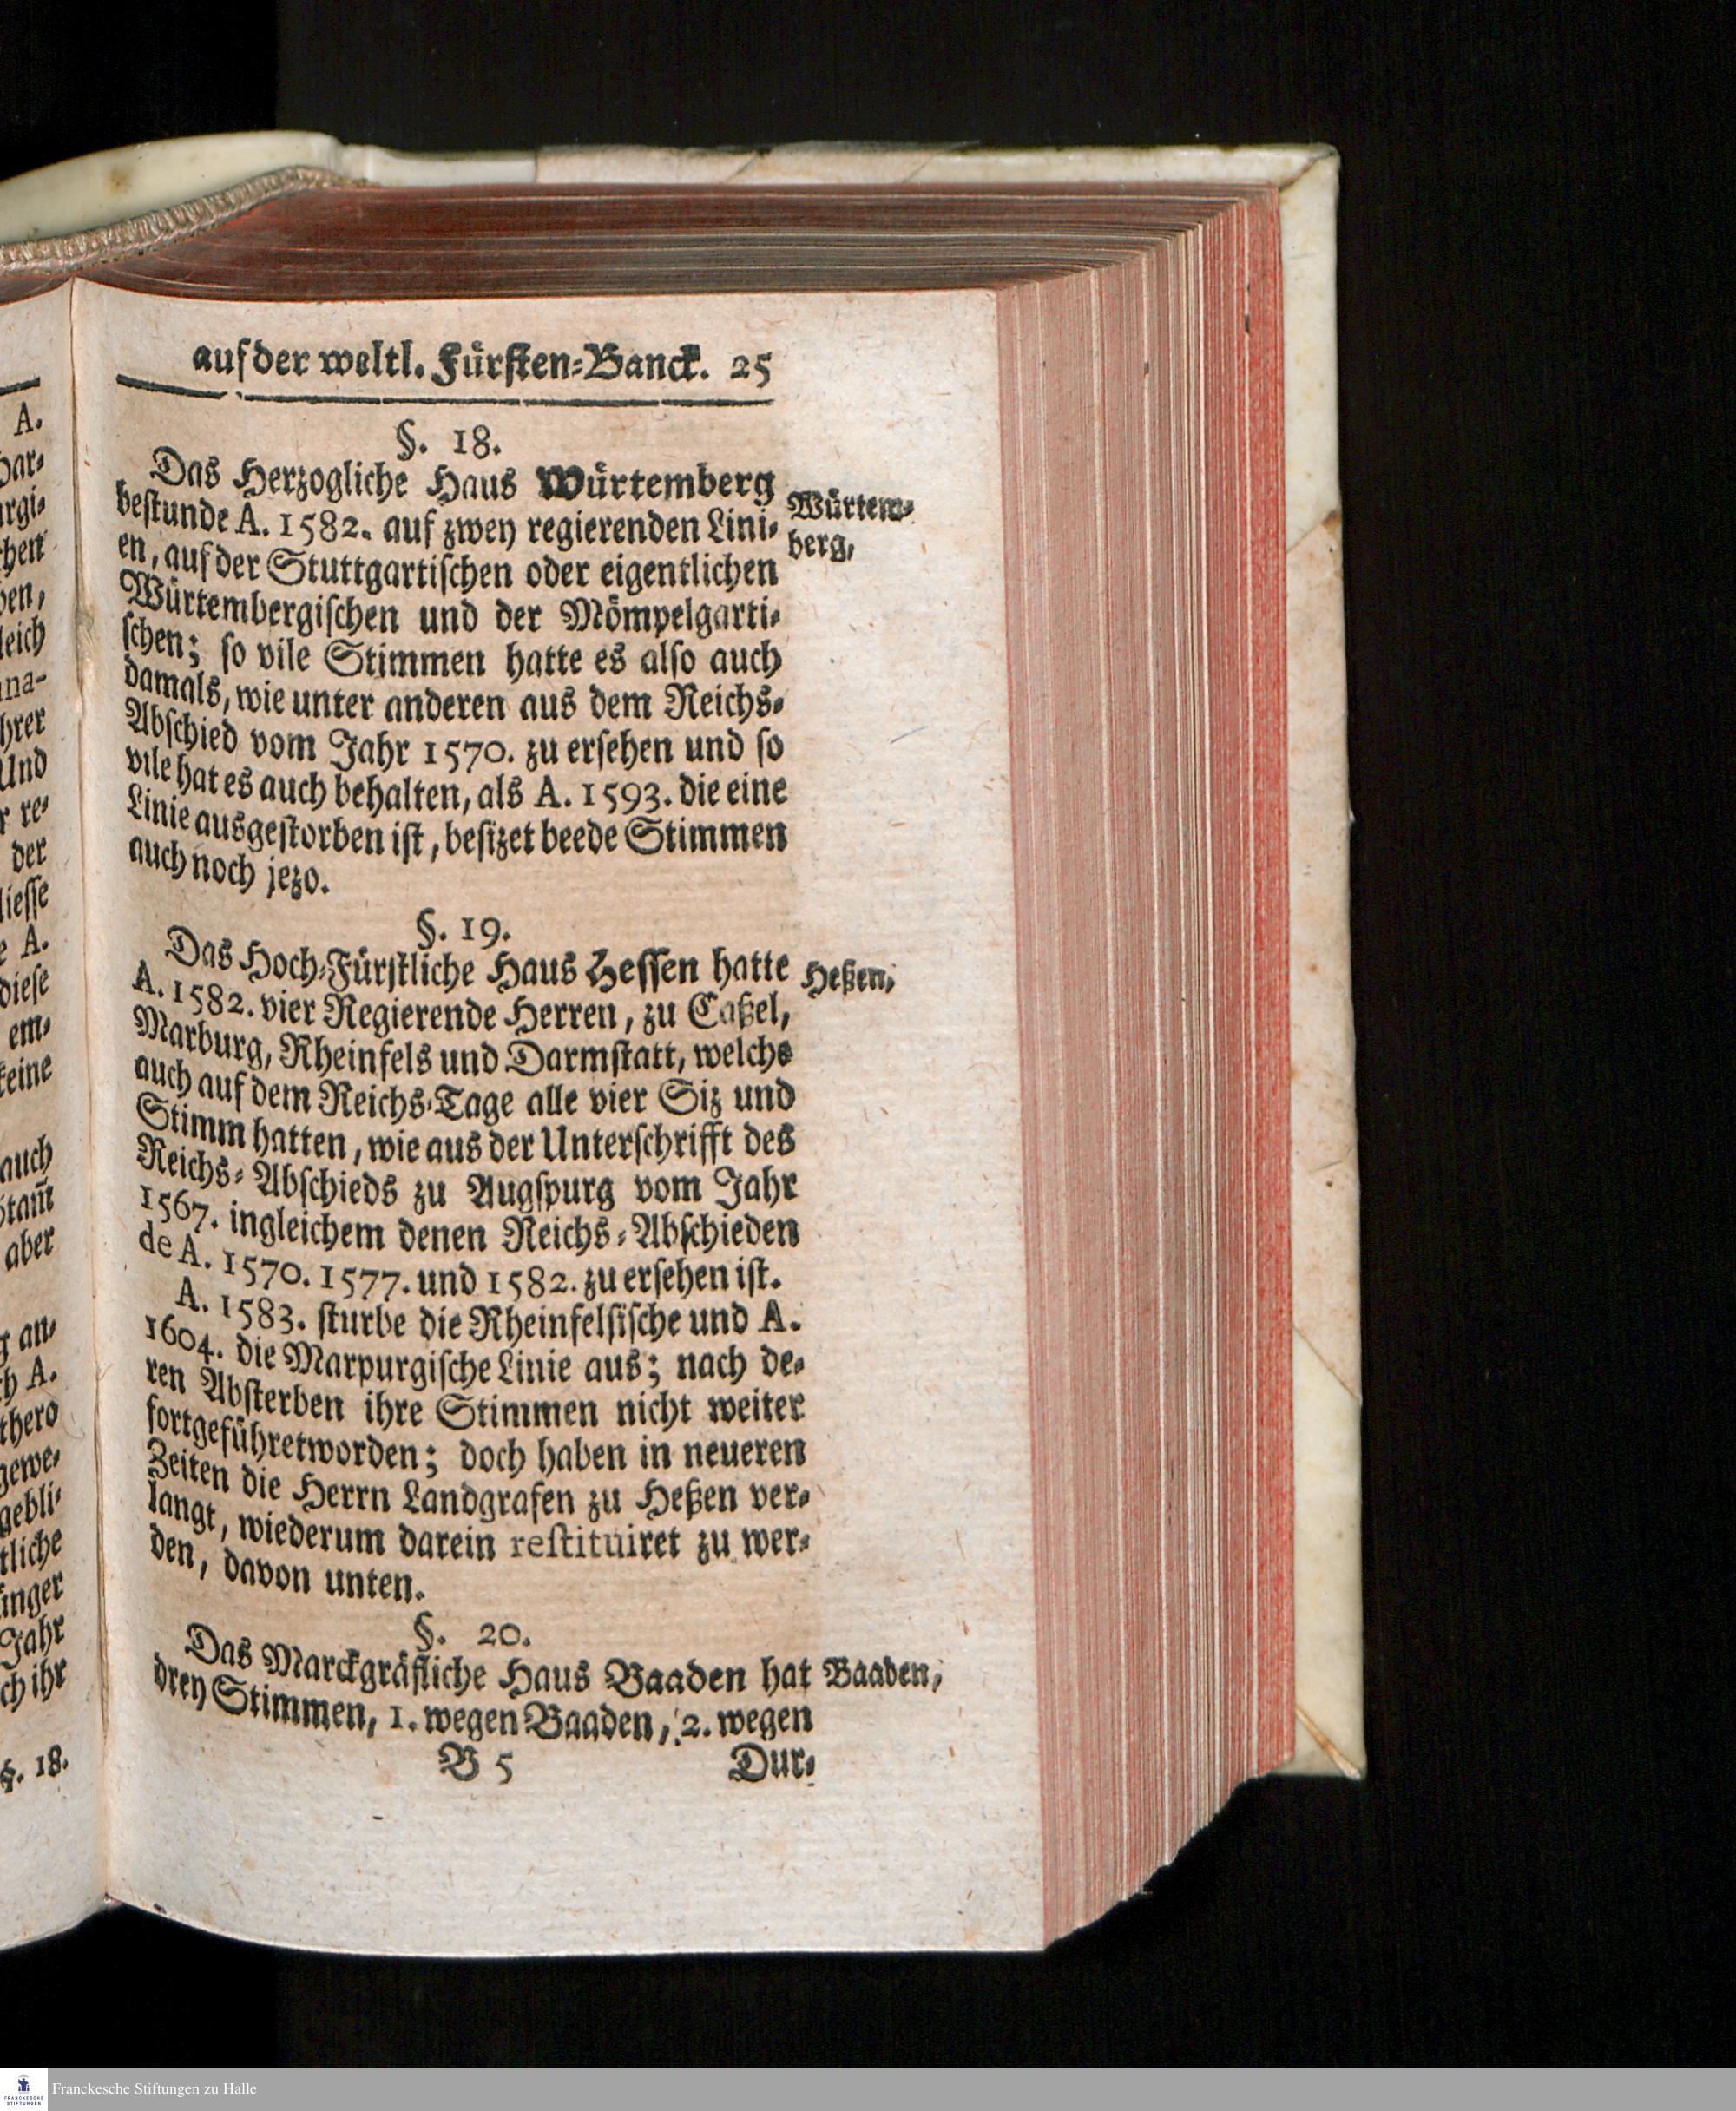 auf der weltl. Fürsten-Banck. 25
§. 18.
Das Herzogliche Haus Würtemberg
Würtem-
berg,
bestunde A. 1582. auf zwey regierenden Lini-
en, auf der Stuttgartischen oder eigentlichen
Würtembergischen und der Mömpelgarti-
schen; so vile Stimmen hatte es also auch
damals, wie unter anderen aus dem Reichs-
Abschied vom Jahr 1570. zu ersehen und so
vile hat es auch behalten, als A. 1593. die eine
Linie ausgestorben ist, besizet beede Stimmen
auch noch jezo.
§. 19.
Das Hoch-Fürstliche Haus Hessen hatte
Heßen,
A. 1582. vier Regierende Herren, zu Caßel,
Marburg, Rheinfels und Darmstatt, welche
auch auf dem Reichs-Tage alle vier Siz und
Stimm hatten, wie aus der Unterschrifft des
Reichs-Abschieds zu Augspurg vom Jahr
1567. ingleichem denen Reichs-Abschieden
de A. 1570. 1577. und 1582. zu ersehen ist.
A. 1583. sturbe die Rheinfelsische und A.
1604. die Marpurgische Linie aus; nach de-
ren Absterben ihre Stimmen nicht weiter
fortgeführet worden; doch haben in neueren
Zeiten die Herrn Landgrafen zu Heßen ver-
langt, wiederum darein restituiret zu wer-
den, davon unten.
§. 20.
Das Marckgräfliche Haus Baaden hat
Baaden,
drey Stimmen, 1. wegen Baaden, 2. wegen
B 5 Dur-
A.
leich
hrer
Und
der
A.
diese
em-
keine
auch
aber
an-
A.
gewe-
gebli-
Jahr
ihr
§. 18.
Franckesche Stiftungen zu Halle
FRANCKESCHE
STIFTUNGEN